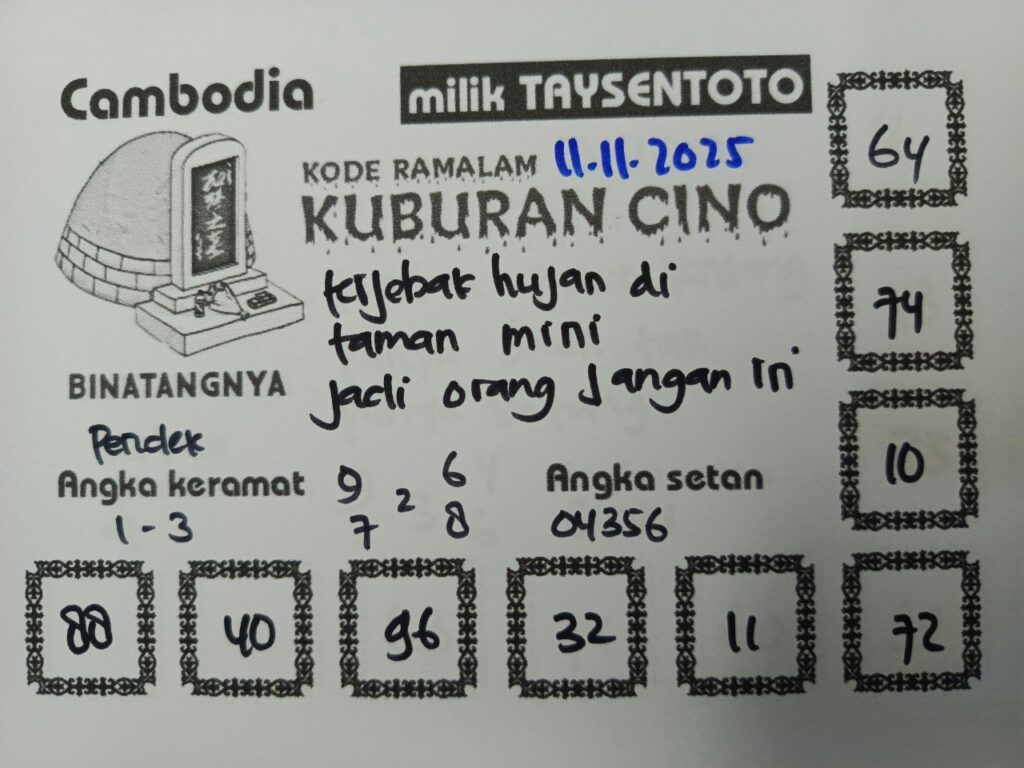 Cambodia
milik TAYSENTOTO
KODE RAMALAM 11.11.2025
KUBURAN CINO
terjebak hujan di
taman mini
jadi orang jangan iri
BINATANGNYA
Pendek
Angka keramat
1 - 3
9 6
2
7 8
Angka setan
04356
64
74
10
88 40 96 32 11 72